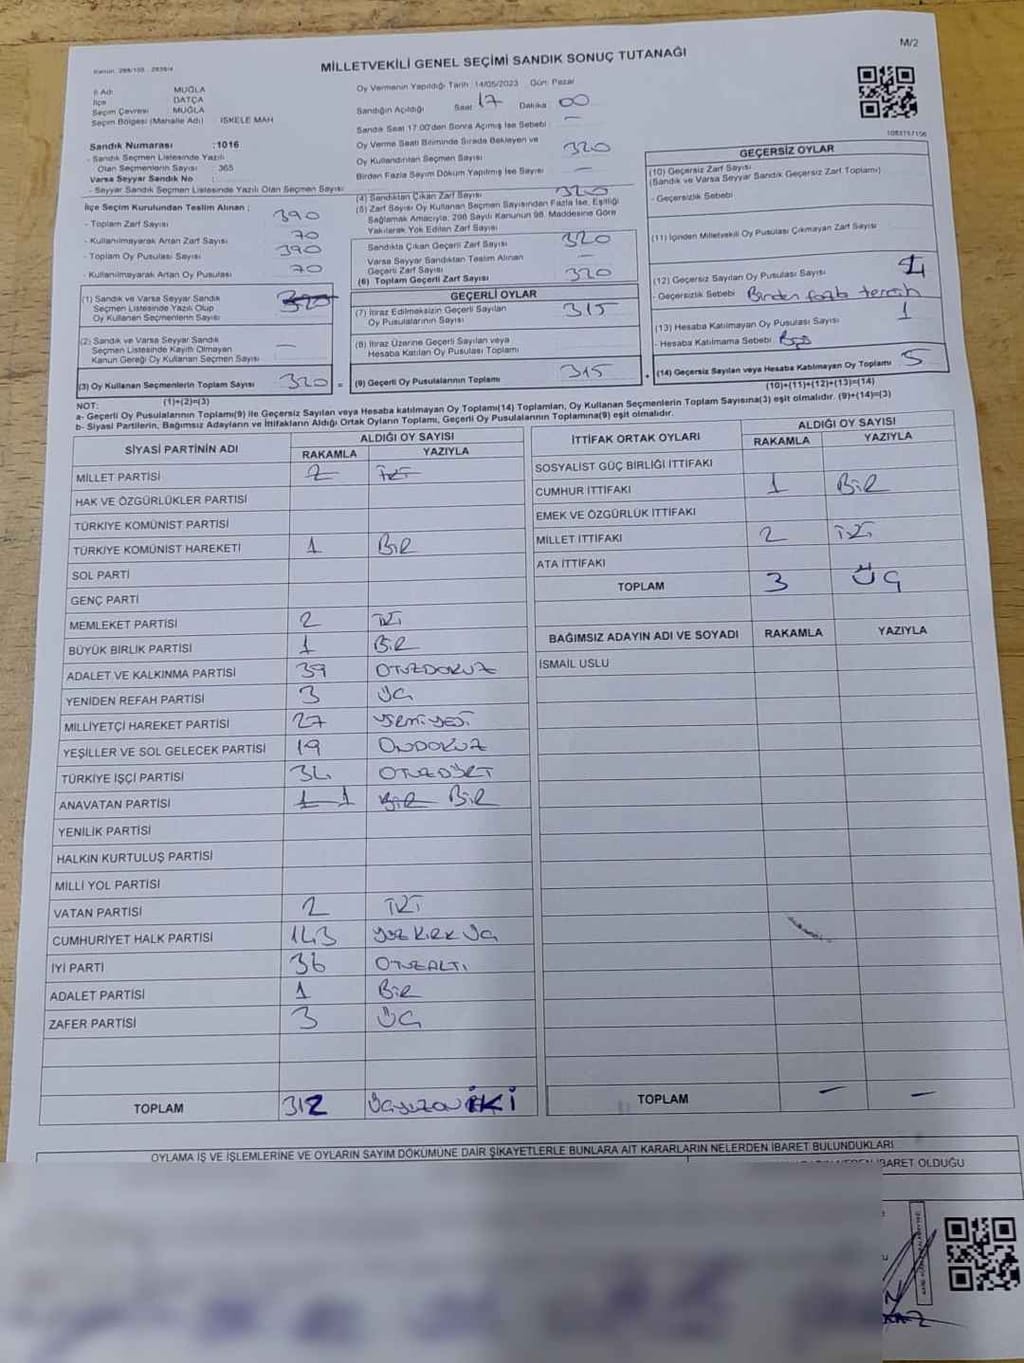 M/2
MİLLETVEKİLİ GENEL SEÇİMİ SANDIK SONUÇ TUTANAĞI
İl Adı : MUĞLA
İlçe : DATÇA
Seçim Çevresi : MUĞLA
Seçim Bölgesi (Mahalle Adı) İSKELE MAH
Sandık Numarası : 1016
- Sandık Seçmen Listesinde Yazılı
Olan Seçmenlerin Sayısı : 365
Varsa Seyyar Sandık No :
- Seyyar Sandık Seçmen Listesinde Yazılı Olan Seçmen Sayısı:
Oy Vermenin Yapıldığı Tarih : 14/05/2023 Gün: Pazar
Sandığın Açıldığı Saat 17 Dakika 00
Sandık Saat 17:00'den Sonra Açılmış İse Sebebi : —
Oy Verme Saati Bitiminde Sırada Bekleyen ve
Oy Kullandırılan Seçmen Sayısı 320
Birden Fazla Sayım Döküm Yapılmış İse Sayısı —
İlçe Seçim Kurulundan Teslim Alınan ;
- Toplam Zarf Sayısı 390
- Kullanılmayarak Artan Zarf Sayısı 70
- Toplam Oy Pusulası Sayısı 390
- Kullanılmayarak Artan Oy Pusulası 70
(1) Sandık ve Varsa Seyyar Sandık
Seçmen Listesinde Yazılı Olup
Oy Kullanan Seçmenlerin Sayısı 320
(2) Sandık ve Varsa Seyyar Sandık
Seçmen Listesinde Kayıtlı Olmayan
Kanun Gereği Oy Kullanan Seçmen Sayısı —
(3) Oy Kullanan Seçmenlerin Toplam Sayısı 320
(1)+(2)=(3)
(4) Sandıktan Çıkan Zarf Sayısı 320
(5) Zarf Sayısı Oy Kullanan Seçmen Sayısından Fazla İse, Eşitliği
Sağlamak Amacıyla; 298 Sayılı Kanunun 98. Maddesine Göre
Yakılarak Yok Edilen Zarf Sayısı
Sandıkta Çıkan Geçerli Zarf Sayısı 320
Varsa Seyyar Sandıktan Teslim Alınan
Geçerli Zarf Sayısı —
(6) Toplam Geçerli Zarf Sayısı 320
GEÇERLİ OYLAR
(7) İtiraz Edilmeksizin Geçerli Sayılan
Oy Pusulalarının Sayısı 315
(8) İtiraz Üzerine Geçerli Sayılan veya
Hesaba Katılan Oy Pusulası Toplamı
= (9) Geçerli Oy Pusulalarının Toplamı 315
GEÇERSİZ OYLAR
(10) Geçersiz Zarf Sayısı
(Sandık ve Varsa Seyyar Sandık Geçersiz Zarf Toplamı)
- Geçersizlik Sebebi
(11) İçinden Milletvekili Oy Pusulası Çıkmayan Zarf Sayısı
(12) Geçersiz Sayılan Oy Pusulası Sayısı
- Geçersizlik Sebebi Birden fazla tercih
(13) Hesaba Katılmayan Oy Pusulası Sayısı 1
- Hesaba Katılmama Sebebi Boş
+ (14) Geçersiz Sayılan veya Hesaba Katılmayan Oy Toplamı 5
(10)+(11)+(12)+(13)=(14)
NOT:
a- Geçerli Oy Pusulalarının Toplamı(9) ile Geçersiz Sayılan veya Hesaba katılmayan Oy Toplamı(14) Toplamları, Oy Kullanan Seçmenlerin Toplam Sayısına(3) eşit olmalıdır. (9)+(14)=(3)
b- Siyasi Partilerin, Bağımsız Adayların ve İttifakların Aldığı Ortak Oyların Toplamı, Geçerli Oy Pusulalarının Toplamına(9) eşit olmalıdır.
SİYASİ PARTİNİN ADI ALDIĞI OY SAYISI
RAKAMLA YAZIYLA
MİLLET PARTİSİ 2 İKİ
HAK VE ÖZGÜRLÜKLER PARTİSİ
TÜRKİYE KOMÜNİST PARTİSİ
TÜRKİYE KOMÜNİST HAREKETİ 1 BİR
SOL PARTİ
GENÇ PARTİ
MEMLEKET PARTİSİ 2 İKİ
BÜYÜK BİRLİK PARTİSİ 1 BİR
ADALET VE KALKINMA PARTİSİ 39 OTUZDOKUZ
YENİDEN REFAH PARTİSİ 3 ÜÇ
MİLLİYETÇİ HAREKET PARTİSİ 27 YİRMİYEDİ
YEŞİLLER VE SOL GELECEK PARTİSİ 19 ONDOKUZ
TÜRKİYE İŞÇİ PARTİSİ 34 OTUZDÖRT
ANAVATAN PARTİSİ 1 1 BİR BİR
YENİLİK PARTİSİ
HALKIN KURTULUŞ PARTİSİ
MİLLİ YOL PARTİSİ
VATAN PARTİSİ 2 İKİ
CUMHURİYET HALK PARTİSİ 143 YÜZ KIRK ÜÇ
İYİ PARTİ 36 OTUZALTI
ADALET PARTİSİ 1 BİR
ZAFER PARTİSİ 3 ÜÇ
TOPLAM 312 ÜÇYÜZON İKİ
İTTİFAK ORTAK OYLARI ALDIĞI OY SAYISI
RAKAMLA YAZIYLA
SOSYALİST GÜÇ BİRLİĞİ İTTİFAKI
CUMHUR İTTİFAKI 1 BİR
EMEK VE ÖZGÜRLÜK İTTİFAKI
MİLLET İTTİFAKI 2 İKİ
ATA İTTİFAKI
TOPLAM 3 ÜÇ
BAĞIMSIZ ADAYIN ADI VE SOYADI RAKAMLA YAZIYLA
İSMAİL USLU
TOPLAM — —
OYLAMA İŞ VE İŞLEMLERİNE VE OYLARIN SAYIM DÖKÜMÜNE DAİR ŞİKAYETLERLE BUNLARA AİT KARARLARIN NELERDEN İBARET BULUNDUKLARI
İBARET OLDUĞU